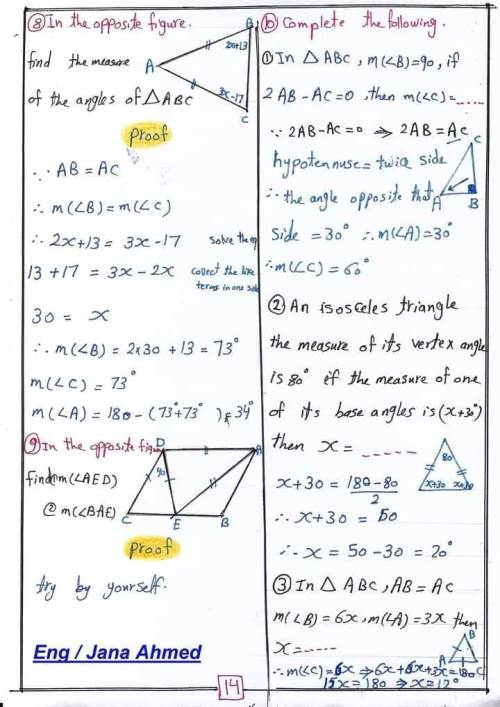 ⑧ In the opposite figure.
find the measure
of the angles of △ABC
B
2x+13
A
3x-17
C
Proof
∵ AB = AC
∴ m(∠B) = m(∠C)
∴ 2x+13 = 3x-17 solve the eq
13 + 17 = 3x - 2x collect the like
terms in one side
30 = x
∴ m(∠B) = 2x30 + 13 = 73°
m(∠C) = 73°
m(∠A) = 180 - (73°+73°) = 34°
⑨ In the opposite figure
find m(∠AED)
② m(∠BAE)
D
A
40
C
E
B
Proof
try by yourself.
Eng / Jana Ahmed
⑩ Complete the following.
① In △ ABC, m(∠B)=90, if
2 AB - AC = 0, then m(∠C) = ......
∵ 2AB - AC = 0 ⇒ 2AB = AC
hypotennuse = twice side
∴ the angle opposite that
C
A
B
side = 30° ∴ m(∠A) = 30°
∴ m(∠C) = 60°
② An isosceles triangle
the measure of its vertex angle
is 80° if the measure of one
of its base angles is (x+30°)
then x = ......
80
x+30 x+30
x + 30 = 180 - 80
2
∴ x + 30 = 50
∴ x = 50 - 30 = 20°
③ In △ ABC, AB = AC
m(∠B) = 6x, m(∠A) = 3x then
x = ......
B
A
C
∴ m(∠C) = 6x ⇒ 6x + 6x + 3x = 180
15x = 180 ⇒ x = 12°
14